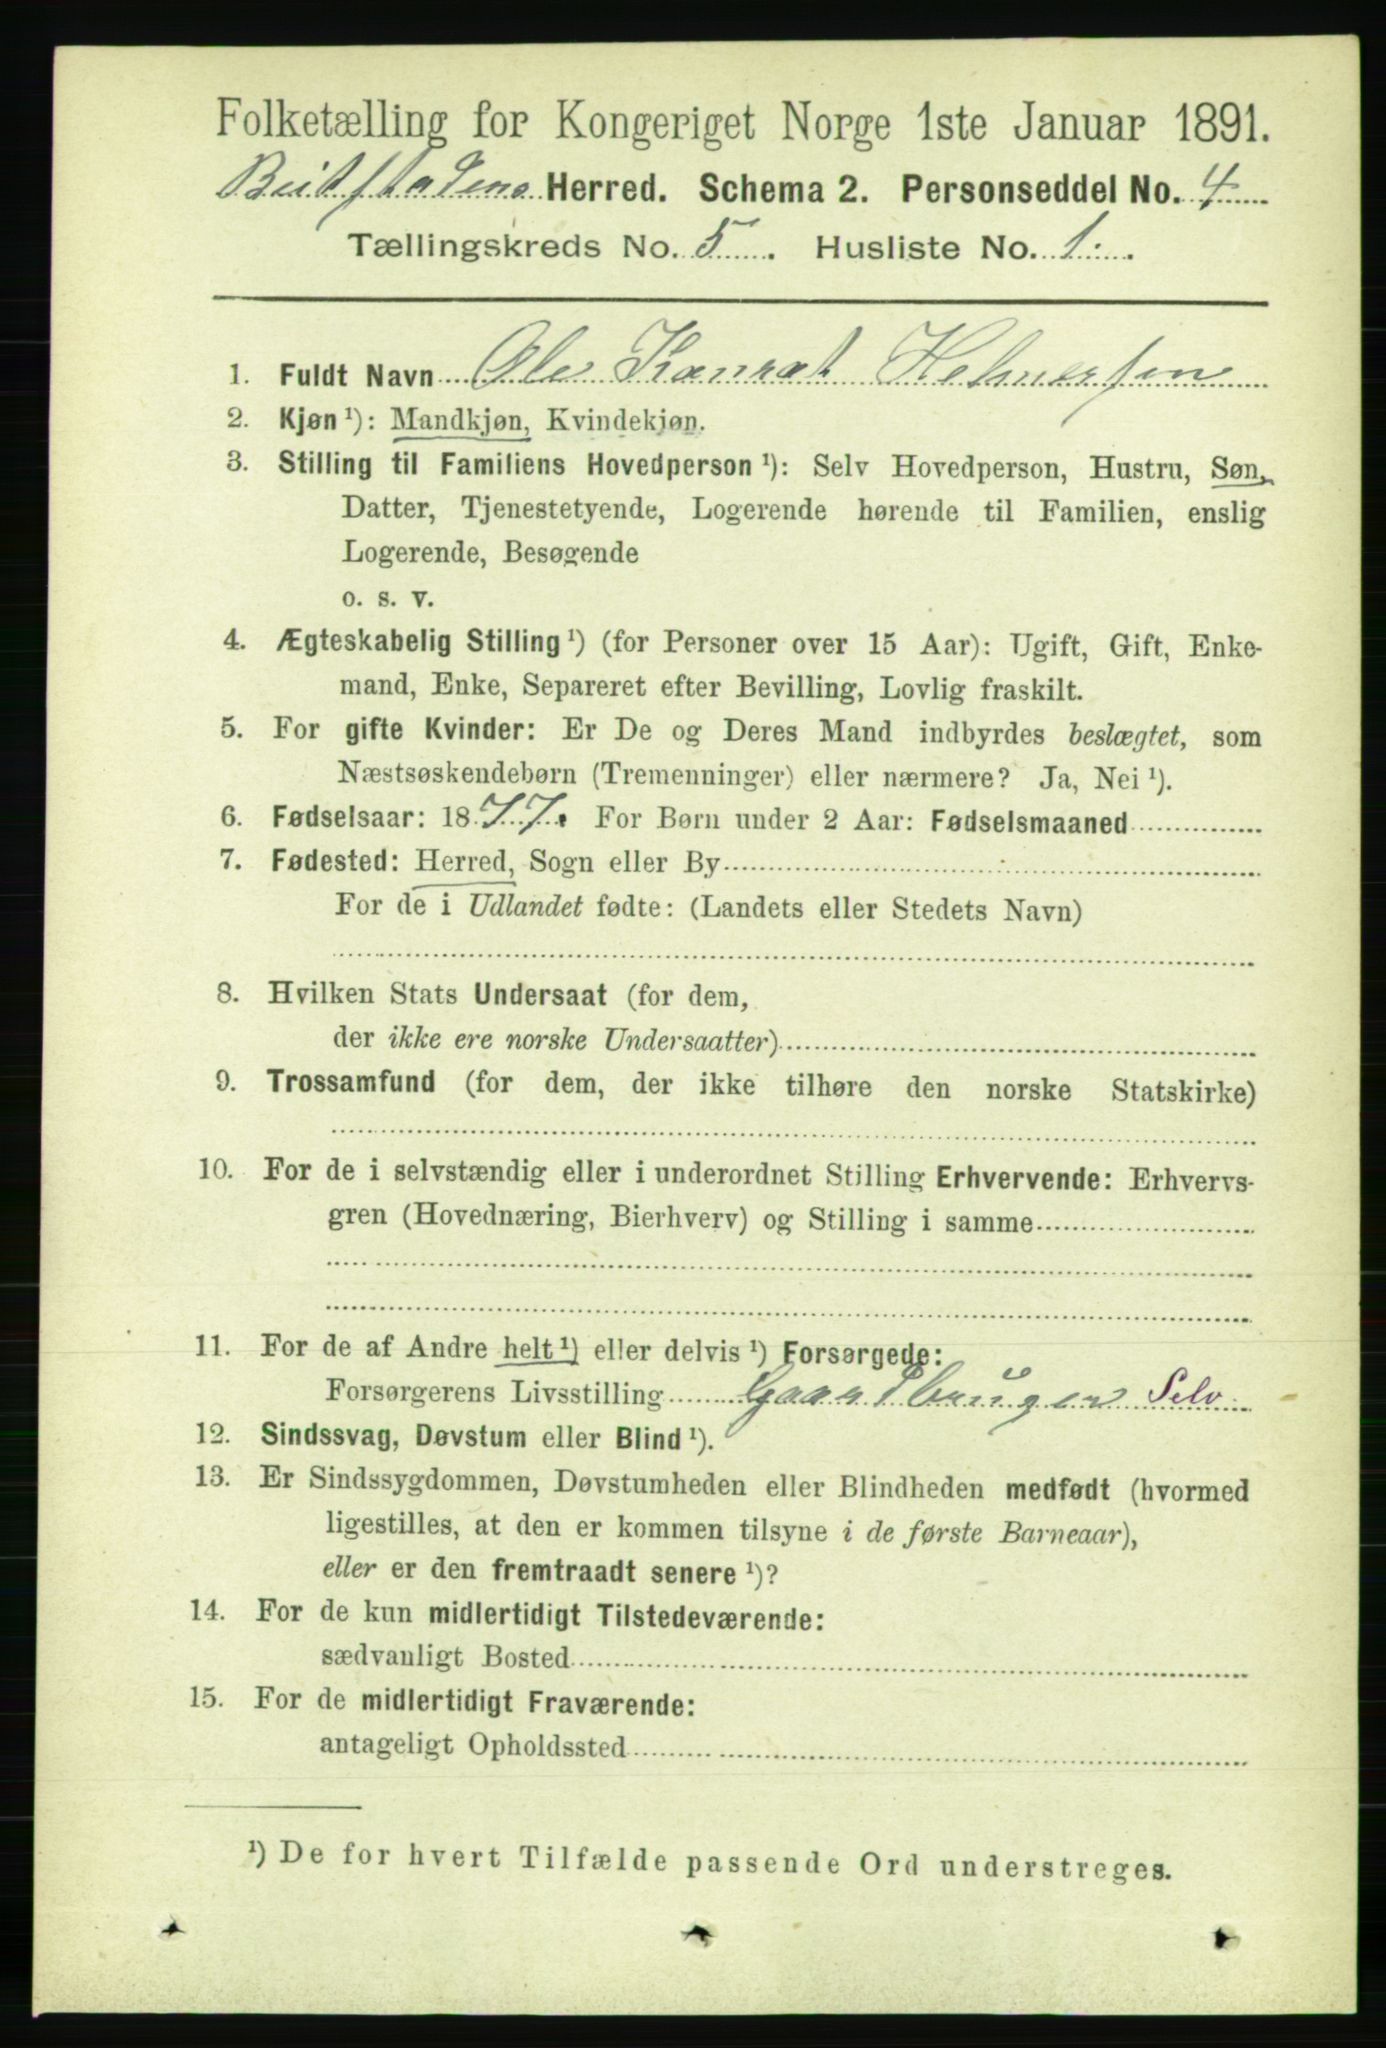 Folketælling for Kongeriget Norge 1ste Januar 1891.
Beitstadens Herred. Schema 2. Personseddel No. 4
Tællingskreds No. 5. Husliste No. 1.
1. Fuldt Navn Ole Konrat Helmersen
2. Kjøn ¹): Mandkjøn, Kvindekjøn.
3. Stilling til Familiens Hovedperson ¹): Selv Hovedperson, Hustru, Søn,
Datter, Tjenestetyende, Logerende hørende til Familien, enslig
Logerende, Besøgende
o. s. v.
4. Ægteskabelig Stilling ¹) (for Personer over 15 Aar): Ugift, Gift, Enke-
mand, Enke, Separeret efter Bevilling, Lovlig fraskilt.
5. For gifte Kvinder: Er De og Deres Mand indbyrdes beslægtet, som
Næstsøskendebørn (Tremenninger) eller nærmere? Ja, Nei ¹).
6. Fødselsaar: 1877. For Børn under 2 Aar: Fødselsmaaned
7. Fødested: Herred, Sogn eller By
For de i Udlandet fødte: (Landets eller Stedets Navn)
8. Hvilken Stats Undersaat (for dem,
der ikke ere norske Undersaatter)
9. Trossamfund (for dem, der ikke tilhøre den norske Statskirke)
10. For de i selvstændig eller i underordnet Stilling Erhvervende: Erhvervs-
gren (Hovednæring, Bierhverv) og Stilling i samme
11. For de af Andre helt ¹) eller delvis ¹) Forsørgede:
Forsørgerens Livsstilling Gaardbruger Selv
12. Sindssvag, Døvstum eller Blind ¹).
13. Er Sindssygdommen, Døvstumheden eller Blindheden medfødt (hvormed
ligestilles, at den er kommen tilsyne i de første Barneaar),
eller er den fremtraadt senere ¹)?
14. For de kun midlertidigt Tilstedeværende:
sædvanligt Bosted
15. For de midlertidigt Fraværende:
antageligt Opholdssted
¹) De for hvert Tilfælde passende Ord understreges.